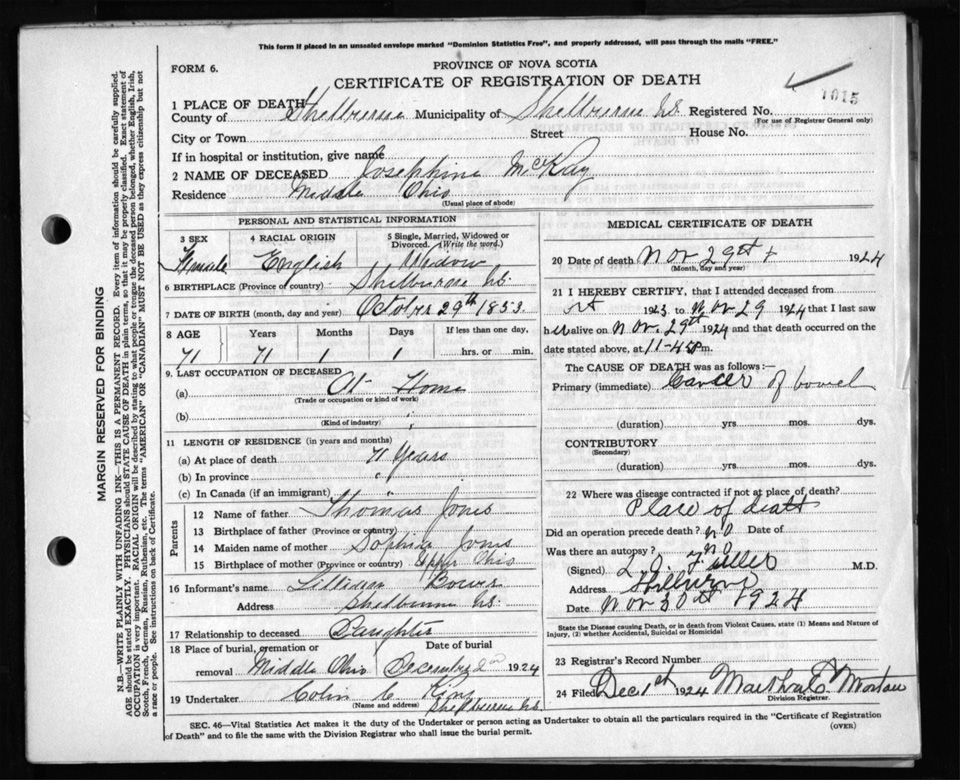 This form if placed in an unsealed envelope marked "Dominion Statistics Free", and properly addressed, will pass through the mails "FREE."
FORM 6.
PROVINCE OF NOVA SCOTIA
CERTIFICATE OF REGISTRATION OF DEATH
1015
1 PLACE OF DEATH
County of Shelburne Municipality of Shelburne NS Registered No.
(For use of Registrar General only)
City or Town Street House No.
If in hospital or institution, give name
2 NAME OF DECEASED Josephine McKay
Residence Middle Ohio
(Usual place of abode)
PERSONAL AND STATISTICAL INFORMATION
3 SEX 4 RACIAL ORIGIN 5 Single, Married, Widowed or Divorced. (Write the word.)
Female English Widow
6 BIRTHPLACE (Province of country) Shelburne NS
7 DATE OF BIRTH (month, day and year) October 29th 1853
8 AGE Years Months Days If less than one day,
71 71 1 1 hrs. or min.
9. LAST OCCUPATION OF DECEASED
(a) At Home
(Trade or occupation or kind of work)
(b)
(Kind of industry)
11 LENGTH OF RESIDENCE (in years and months)
(a) At place of death 71 Years
(b) In province "
(c) In Canada (if an immigrant) "
Parents
12 Name of father Thomas Jones
13 Birthplace of father (Province or country)
14 Maiden name of mother Sophia Jones
15 Birthplace of mother (Province or country) Upper Ohio
16 Informant's name Lillian Bower
Address Shelburne NS
17 Relationship to deceased Daughter
18 Place of burial, cremation or removal Middle Ohio Date of burial December 2nd 1924
19 Undertaker Colin C King
(Name and address) Shelburne NS
MEDICAL CERTIFICATE OF DEATH
20 Date of death Nov 29th 1924
(Month, day and year)
21 I HEREBY CERTIFY, that I attended deceased from
1923 to Nov 29 1924 that I last saw
her alive on Nov. 29th 1924 and that death occurred on the
date stated above, at 11-45 pm.
The CAUSE OF DEATH was as follows:—
Primary (immediate) Cancer of bowel
(duration) yrs. mos. dys.
CONTRIBUTORY
(Secondary)
(duration) yrs. mos. dys.
22 Where was disease contracted if not at place of death?
Place of death
Did an operation precede death? no Date of
Was there an autopsy? no
(Signed) Fuller M.D.
Address Shelburne
Date Nov 30th 1924
State the Disease causing Death, or in death from Violent Causes, state (1) Means and Nature of
Injury, (2) whether Accidental, Suicidal or Homicidal
23 Registrar's Record Number
24 Filed Dec 1st 1924 Martha C Morton
Division Registrar.
SEC. 46—Vital Statistics Act makes it the duty of the Undertaker or person acting as Undertaker to obtain all the particulars required in the "Certificate of Registration
of Death" and to file the same with the Division Registrar who shall issue the burial permit.
(OVER)
MARGIN RESERVED FOR BINDING
N.B.—WRITE PLAINLY WITH UNFADING INK—THIS IS A PERMANENT RECORD. Every item of information should be carefully supplied.
AGE should be stated EXACTLY. PHYSICIANS should STATE CAUSE OF DEATH in plain terms, so that it may be properly classified. Exact statement of
OCCUPATION is very important. RACIAL ORIGIN will be described by stating to what people or tongue the deceased person belonged, whether English, Irish,
Scotch, French, German, Russian, Ruthenian, etc. The terms "AMERICAN" OR "CANADIAN" MUST NOT BE USED as they express citizenship but not
a race or people. See instructions on back of Certificate.